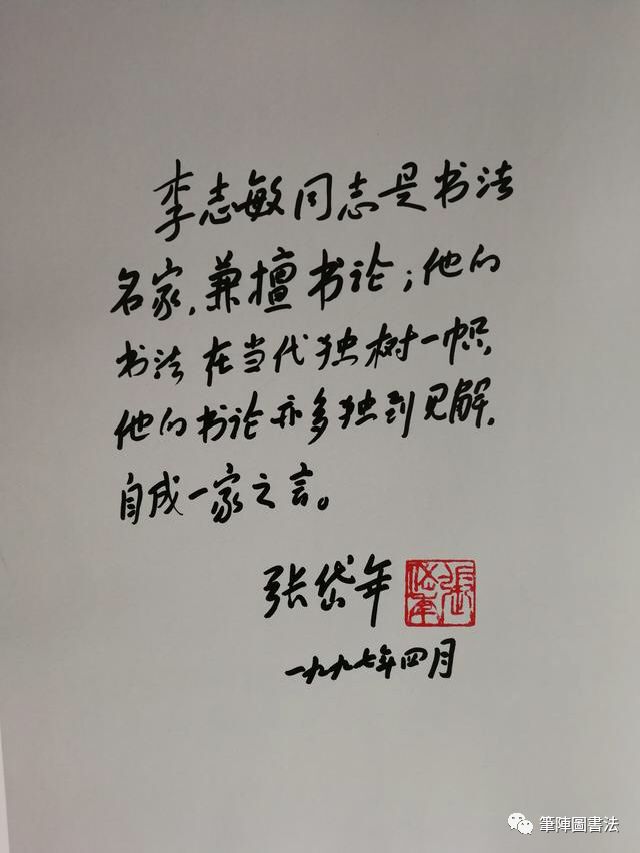 李志敏同志是书法
名家，兼擅书论；他的
书法在当代独树一帜，
他的书论亦多独到见解，
自成一家之言。
张岱年
張岱年
一九九七年四月
筆陣圖書法